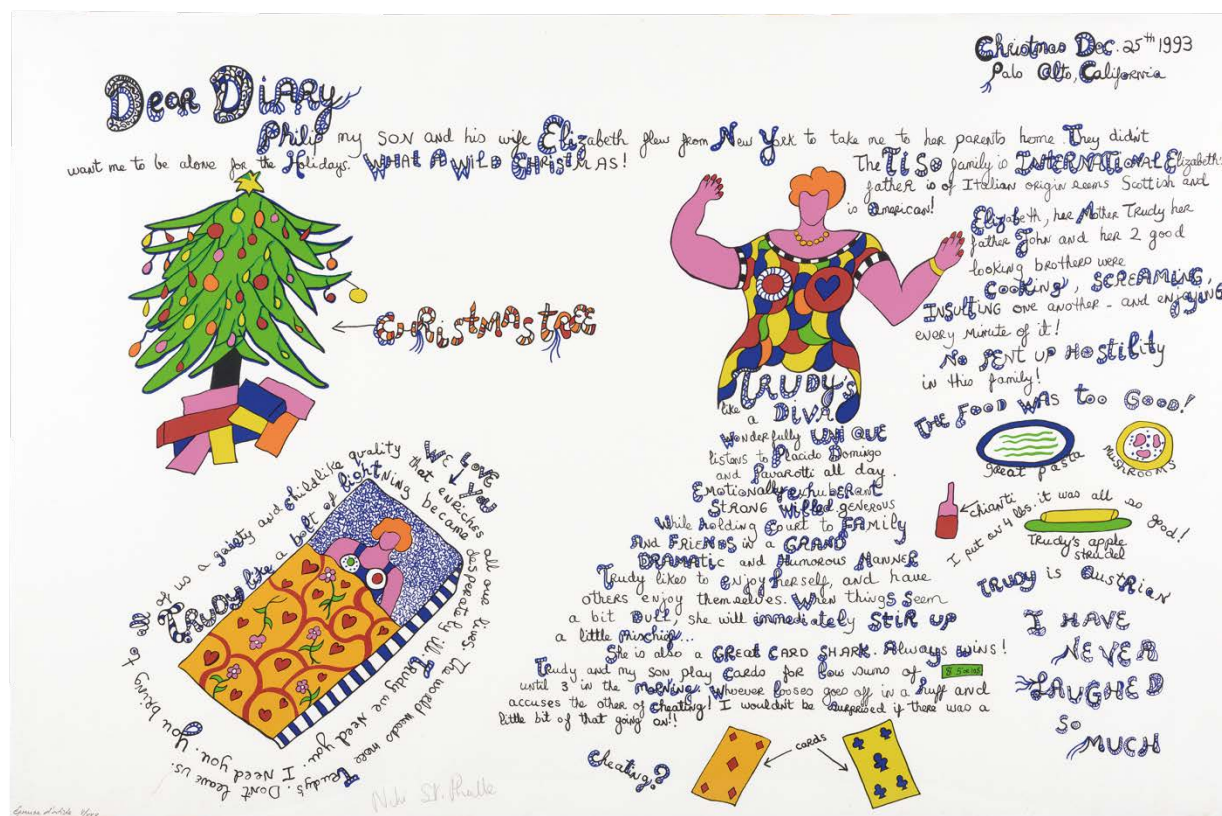 Christmas Dec. 25th 1993
Palo Alto, California
Dear Diary
Philip my SON and his wife Elizabeth flew from New York to take me to her parents home. They didn't
want me to be alone for the Holidays. WHAT A WILD CHRISTMAS!
The TISO family is INTERNATIONAL Elizabeth's
father is of Italian origin seems Scottish and
is American!
Elizabeth, her Mother Trudy her
father John and her 2 good
looking brothers were
Cooking, SCREAMING,
INSULTING one another - and enjoying
every minute of it!
No PENT UP HOSTILITY
in this family!
THE FOOD WAS too GOOD!
great pasta
MUSHROOMS
chianti
I put on 4 lbs. it was all so good!
Trudy's apple
strudel
TRUDY is Austrian
I HAVE
NEVER
LAUGHED
SO
MUCH
CHRISTMAS TREE
TRUDY'S
like a DIVA
Wonderfully UNIQUE
listens to Placido Domingo
and Pavarotti all day.
EMOTIONALLY exhuberant
STRONG Willed generous
While holding COURT to FAMILY
AND FRIENDS in a GRAND
DRAMATIC and Humorous MANNER
Trudy likes to enjoy herself, and have
others enjoy themselves. When things seem
a bit DULL, she will immediately STIR UP
a little mischief...
She is also a GREAT CARD SHARK. Always wins!
Trudy and my son play cards for low sums of
until 3 in the morning. Whoever looses goes off in a huff and
accuses the other of cheating! I wouldn't be surprised if there was a
little bit of that going on!!
Cheating?
cards
WE LOVE
YOU
TRUDY like a bolt of lightning became desperately ill. Trudy we need you. I need you. You bring to
all of us a gaiety and childlike quality that enriches all our lives. The world needs more
Trudy's. Don't leave us.
Niki St. Phalle